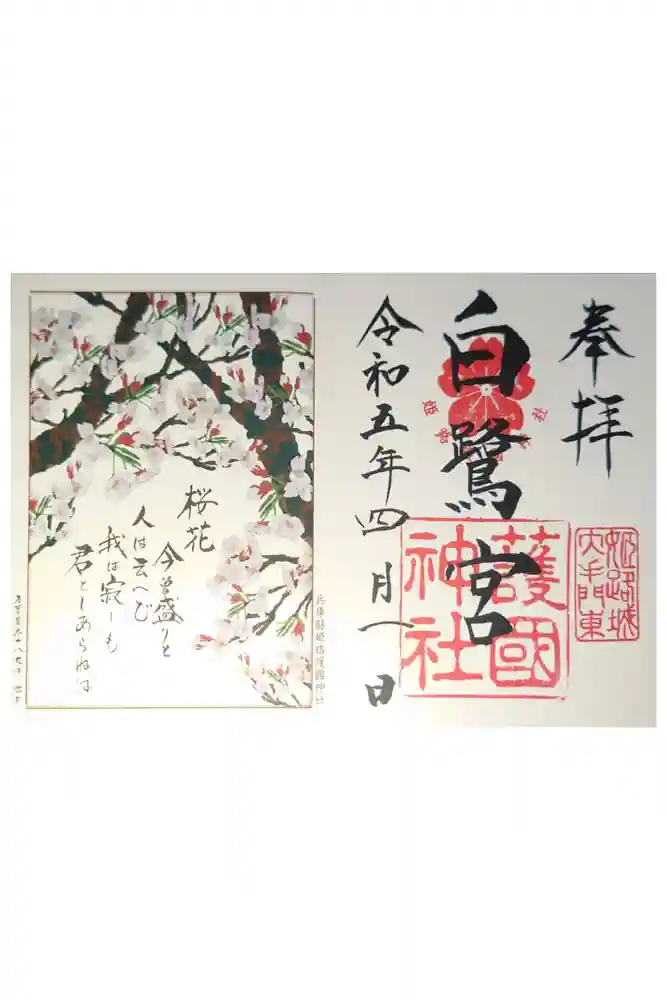 奉拝
白鷺宮
令和五年四月一日
姫路城
大手門東
護國
神社
兵庫縣姫路護國神社
桜花
今曽盛りと
人は云へど
我は寂しも
君としあらねば